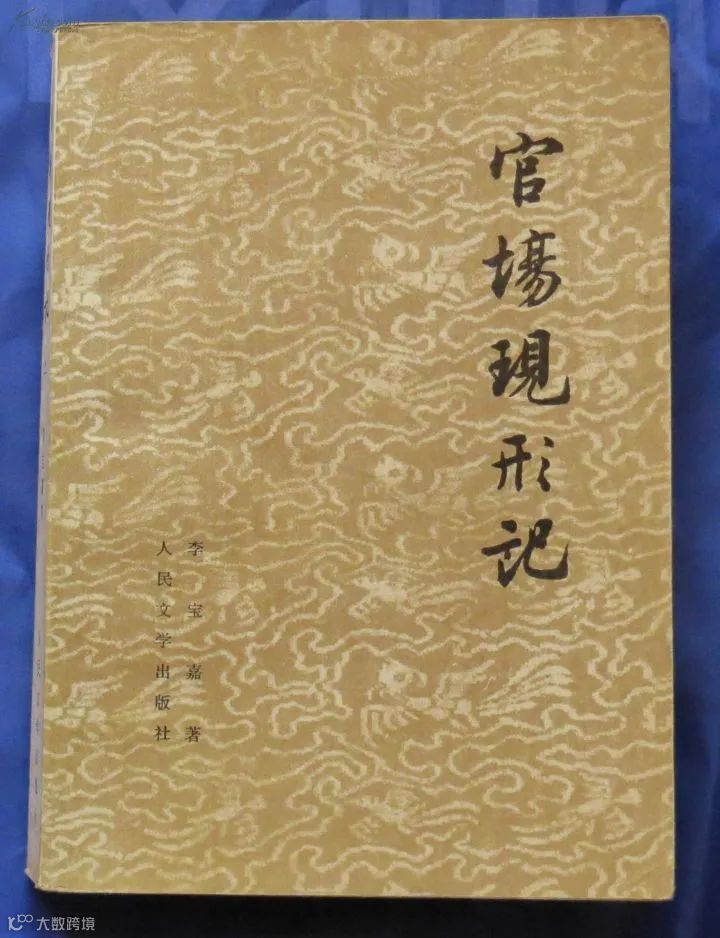 官場現形記
李宝嘉著
人民文学出版社
大数跨境